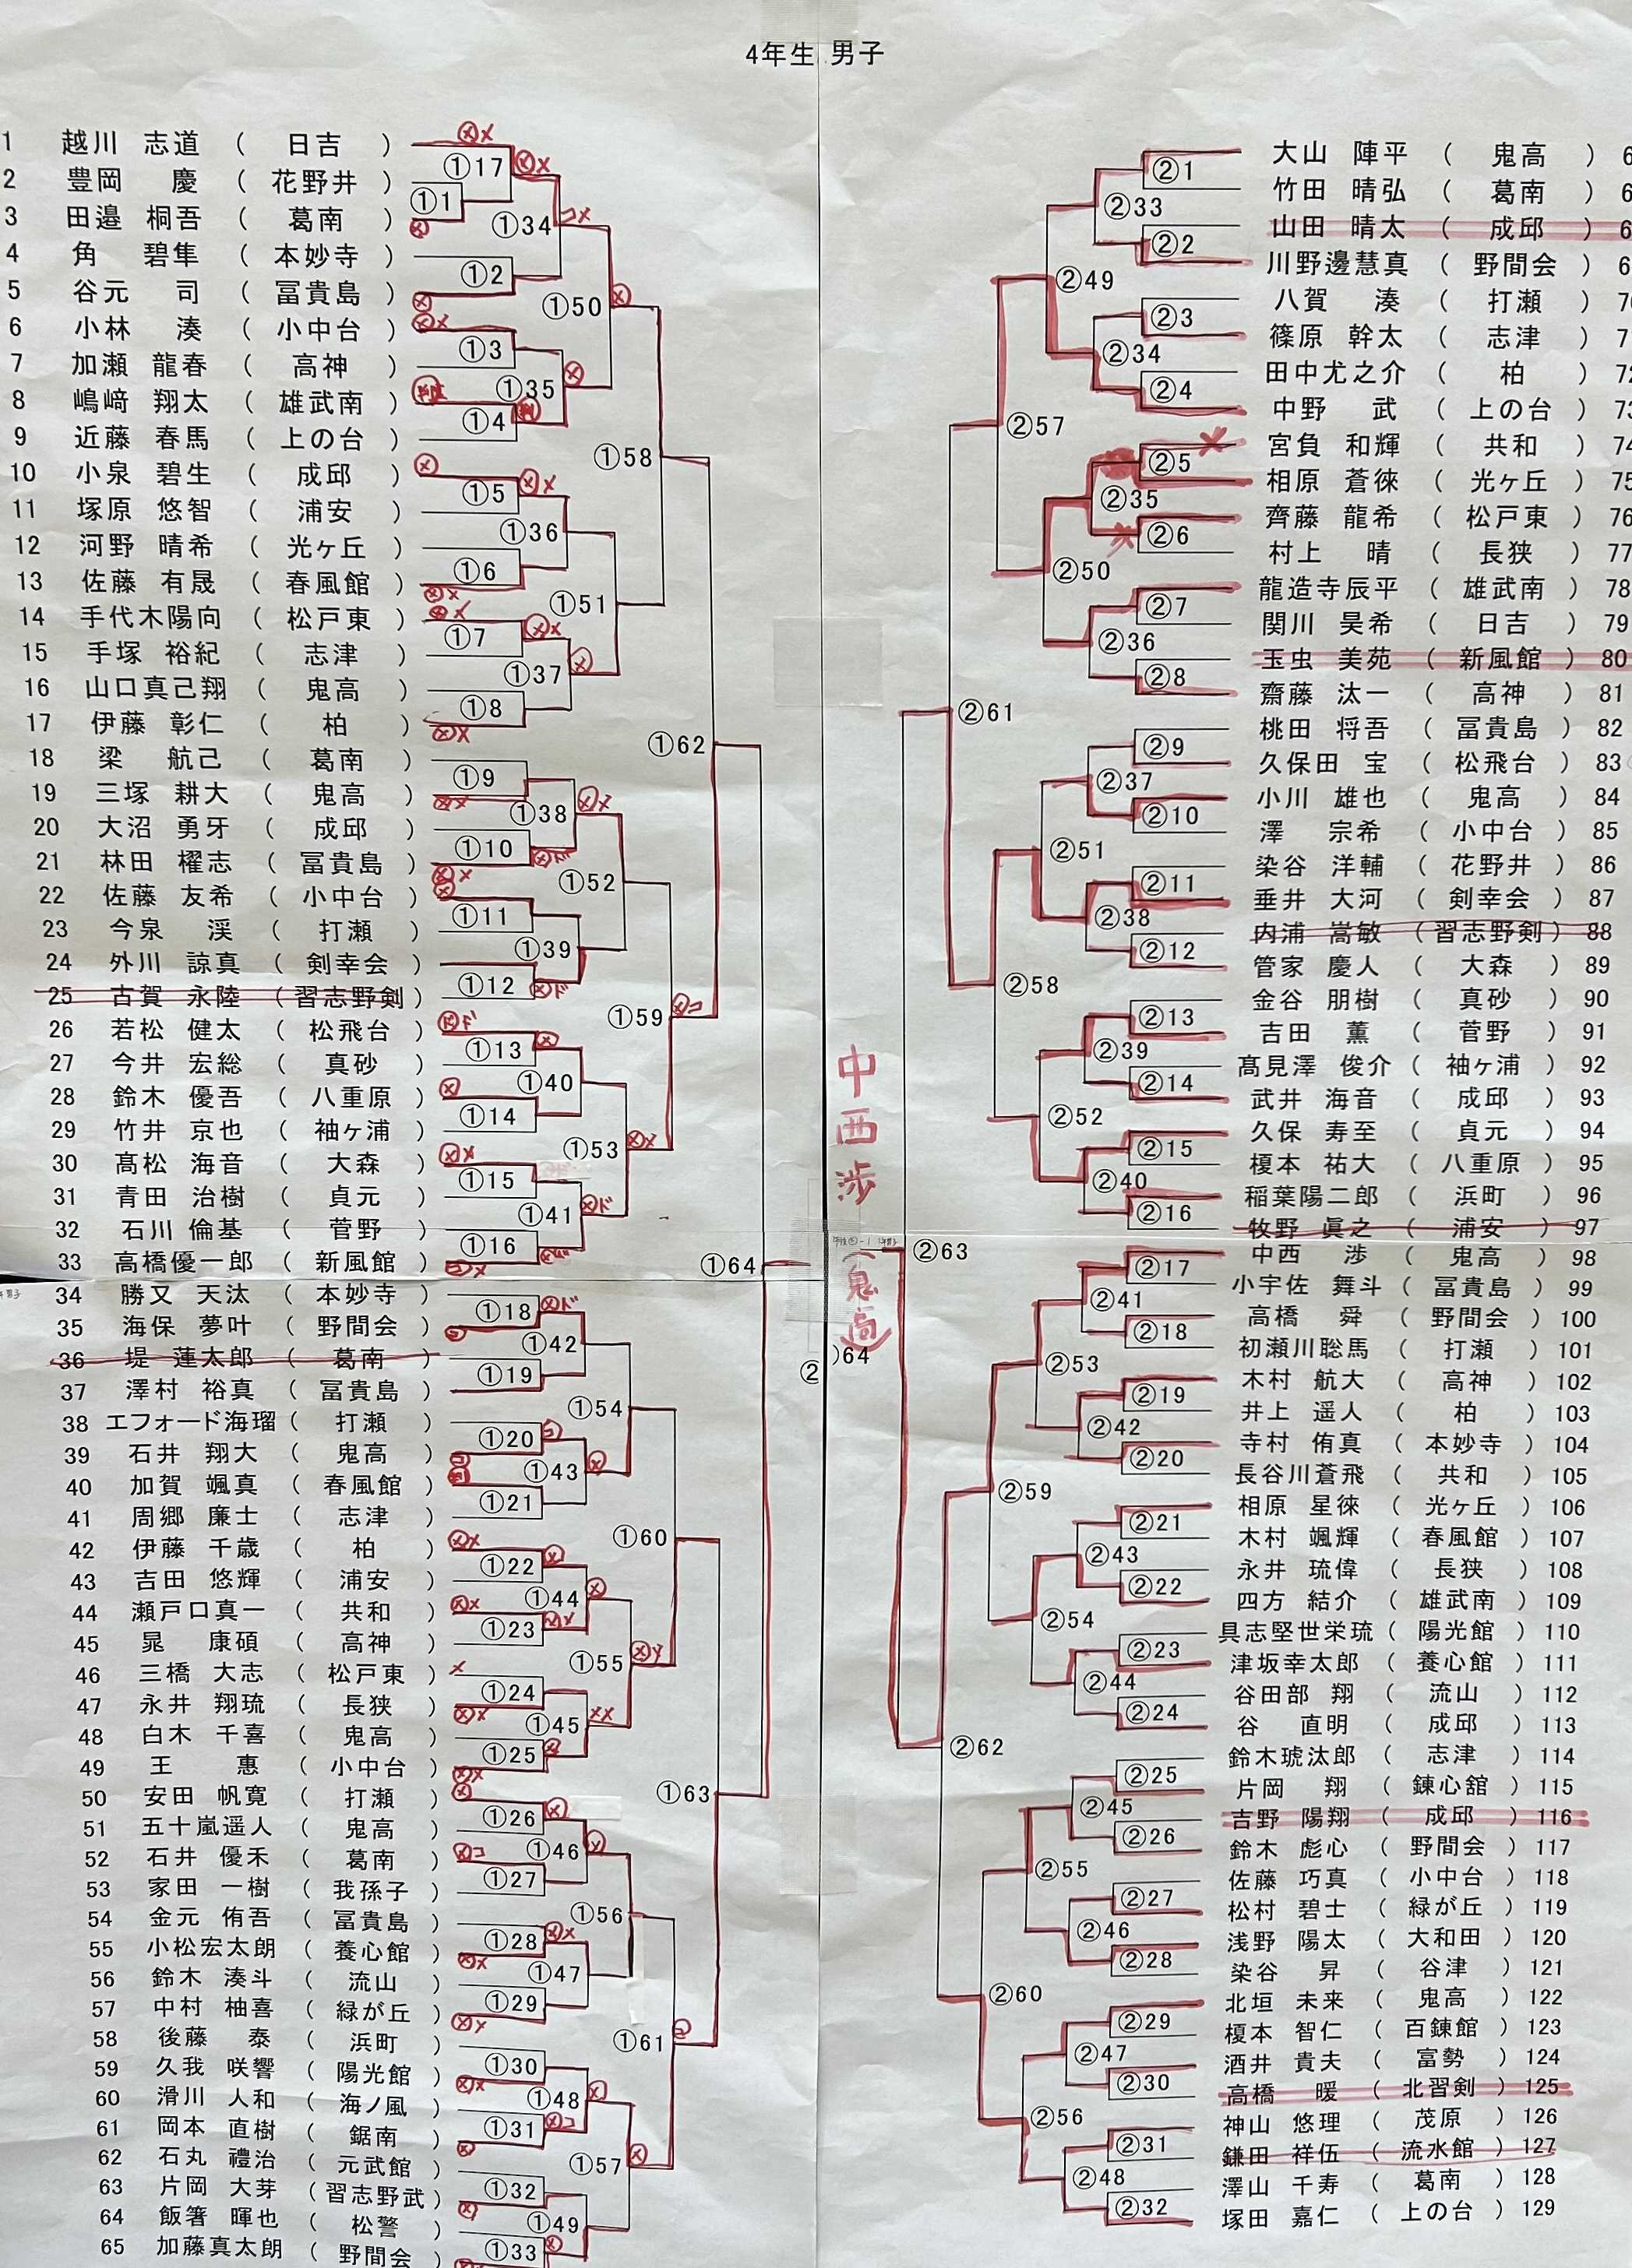 4年生 男子
1 越川 志道 ( 日吉 )
2 豊岡 慶 ( 花野井 )
3 田邉 桐吾 ( 葛南 )
4 角 碧隼 ( 本妙寺 )
5 谷元 司 ( 冨貴島 )
6 小林 湊 ( 小中台 )
7 加瀬 龍春 ( 高神 )
8 嶋﨑 翔太 ( 雄武南 )
9 近藤 春馬 ( 上の台 )
10 小泉 碧生 ( 成邱 )
11 塚原 悠智 ( 浦安 )
12 河野 晴希 ( 光ヶ丘 )
13 佐藤 有晟 ( 春風館 )
14 手代木陽向 ( 松戸東 )
15 手塚 裕紀 ( 志津 )
16 山口真己翔 ( 鬼高 )
17 伊藤 彰仁 ( 柏 )
18 梁 航己 ( 葛南 )
19 三塚 耕大 ( 鬼高 )
20 大沼 勇牙 ( 成邱 )
21 林田 櫂志 ( 冨貴島 )
22 佐藤 友希 ( 小中台 )
23 今泉 渓 ( 打瀬 )
24 外川 諒真 ( 剣幸会 )
25 古賀 永陸 ( 習志野剣 )
26 若松 健太 ( 松飛台 )
27 今井 宏総 ( 真砂 )
28 鈴木 優吾 ( 八重原 )
29 竹井 京也 ( 袖ヶ浦 )
30 髙松 海音 ( 大森 )
31 青田 治樹 ( 貞元 )
32 石川 倫基 ( 菅野 )
33 高橋優一郎 ( 新風館 )
34 勝又 天汰 ( 本妙寺 )
35 海保 夢叶 ( 野間会 )
36 堤 蓮太郎 ( 葛南 )
37 澤村 裕真 ( 冨貴島 )
38 エフォード海瑠 ( 打瀬 )
39 石井 翔大 ( 鬼高 )
40 加賀 颯真 ( 春風館 )
41 周郷 廉士 ( 志津 )
42 伊藤 千歳 ( 柏 )
43 吉田 悠輝 ( 浦安 )
44 瀬戸口真一 ( 共和 )
45 晁 康碩 ( 高神 )
46 三橋 大志 ( 松戸東 )
47 永井 翔琉 ( 長狭 )
48 白木 千喜 ( 鬼高 )
49 王 惠 ( 小中台 )
50 安田 帆寛 ( 打瀬 )
51 五十嵐遥人 ( 鬼高 )
52 石井 優禾 ( 葛南 )
53 家田 一樹 ( 我孫子 )
54 金元 侑吾 ( 冨貴島 )
55 小松宏太朗 ( 養心館 )
56 鈴木 湊斗 ( 流山 )
57 中村 柚喜 ( 緑が丘 )
58 後藤 泰 ( 浜町 )
59 久我 咲響 ( 陽光館 )
60 滑川 人和 ( 海ノ風 )
61 岡本 直樹 ( 鋸南 )
62 石丸 禮治 ( 元武館 )
63 片岡 大芽 ( 習志野武 )
64 飯箸 暉也 ( 松警 )
65 加藤真太朗 ( 野間会
①17
①1
①34
①2
①50
①3
①35
①4
①58
①5
①36
①6
①51
①7
①37
①8
①62
①9
①38
①10
①52
①11
①39
①12
①59
①13
①40
①14
①53
①15
①41
①16
①64
①18
①42
①19
①54
①20
①43
①21
①60
①22
①44
①23
①55
①24
①45
①25
①63
①26
①46
①27
①56
①28
①47
①29
①61
①30
①48
①31
①57
①32
①49
①33
中西渉
(鬼高)
②
)64
②1
②33
②2
②49
②3
②34
②4
②57
②5
②35
②6
②50
②7
②36
②8
②61
②9
②37
②10
②51
②11
②38
②12
②58
②13
②39
②14
②52
②15
②40
②16
②63
②17
②41
②18
②53
②19
②42
②20
②59
②21
②43
②22
②54
②23
②44
②24
②62
②25
②45
②26
②55
②27
②46
②28
②60
②29
②47
②30
②56
②31
②48
②32
大山 陣平 ( 鬼高 ) 6
竹田 晴弘 ( 葛南 ) 6
山田 晴太 ( 成邱 ) 6
川野邊慧真 ( 野間会 ) 6
八賀 湊 ( 打瀬 ) 7
篠原 幹太 ( 志津 ) 7
田中尤之介 ( 柏 ) 72
中野 武 ( 上の台 ) 73
宮負 和輝 ( 共和 ) 74
相原 蒼徠 ( 光ヶ丘 ) 75
齊藤 龍希 ( 松戸東 ) 76
村上 晴 ( 長狭 ) 77
龍造寺辰平 ( 雄武南 ) 78
関川 昊希 ( 日吉 ) 79
玉虫 美苑 ( 新風館 ) 80
齋藤 汰一 ( 高神 ) 81
桃田 将吾 ( 冨貴島 ) 82
久保田 宝 ( 松飛台 ) 83
小川 雄也 ( 鬼高 ) 84
澤 宗希 ( 小中台 ) 85
染谷 洋輔 ( 花野井 ) 86
垂井 大河 ( 剣幸会 ) 87
内浦 嵩敏 ( 習志野剣 ) 88
管家 慶人 ( 大森 ) 89
金谷 朋樹 ( 真砂 ) 90
吉田 薫 ( 菅野 ) 91
髙見澤 俊介 ( 袖ヶ浦 ) 92
武井 海音 ( 成邱 ) 93
久保 寿至 ( 貞元 ) 94
榎本 祐大 ( 八重原 ) 95
稲葉陽二郎 ( 浜町 ) 96
牧野 眞之 ( 浦安 ) 97
中西 渉 ( 鬼高 ) 98
小宇佐 舞斗 ( 冨貴島 ) 99
高橋 舜 ( 野間会 ) 100
初瀬川聡馬 ( 打瀬 ) 101
木村 航大 ( 高神 ) 102
井上 遥人 ( 柏 ) 103
寺村 侑真 ( 本妙寺 ) 104
長谷川蒼飛 ( 共和 ) 105
相原 星徠 ( 光ヶ丘 ) 106
木村 颯輝 ( 春風館 ) 107
永井 琉偉 ( 長狭 ) 108
四方 結介 ( 雄武南 ) 109
具志堅世栄琉 ( 陽光館 ) 110
津坂幸太郎 ( 養心館 ) 111
谷田部 翔 ( 流山 ) 112
谷 直明 ( 成邱 ) 113
鈴木琥汰郎 ( 志津 ) 114
片岡 翔 ( 錬心舘 ) 115
吉野 陽翔 ( 成邱 ) 116
鈴木 彪心 ( 野間会 ) 117
佐藤 巧真 ( 小中台 ) 118
松村 碧士 ( 緑が丘 ) 119
浅野 陽太 ( 大和田 ) 120
染谷 昇 ( 谷津 ) 121
北垣 未来 ( 鬼高 ) 122
榎本 智仁 ( 百錬館 ) 123
酒井 貴夫 ( 富勢 ) 124
高橋 暖 ( 北習剣 ) 125
神山 悠理 ( 茂原 ) 126
鎌田 祥伍 ( 流水館 ) 127
澤山 千寿 ( 葛南 ) 128
塚田 嘉仁 ( 上の台 ) 129